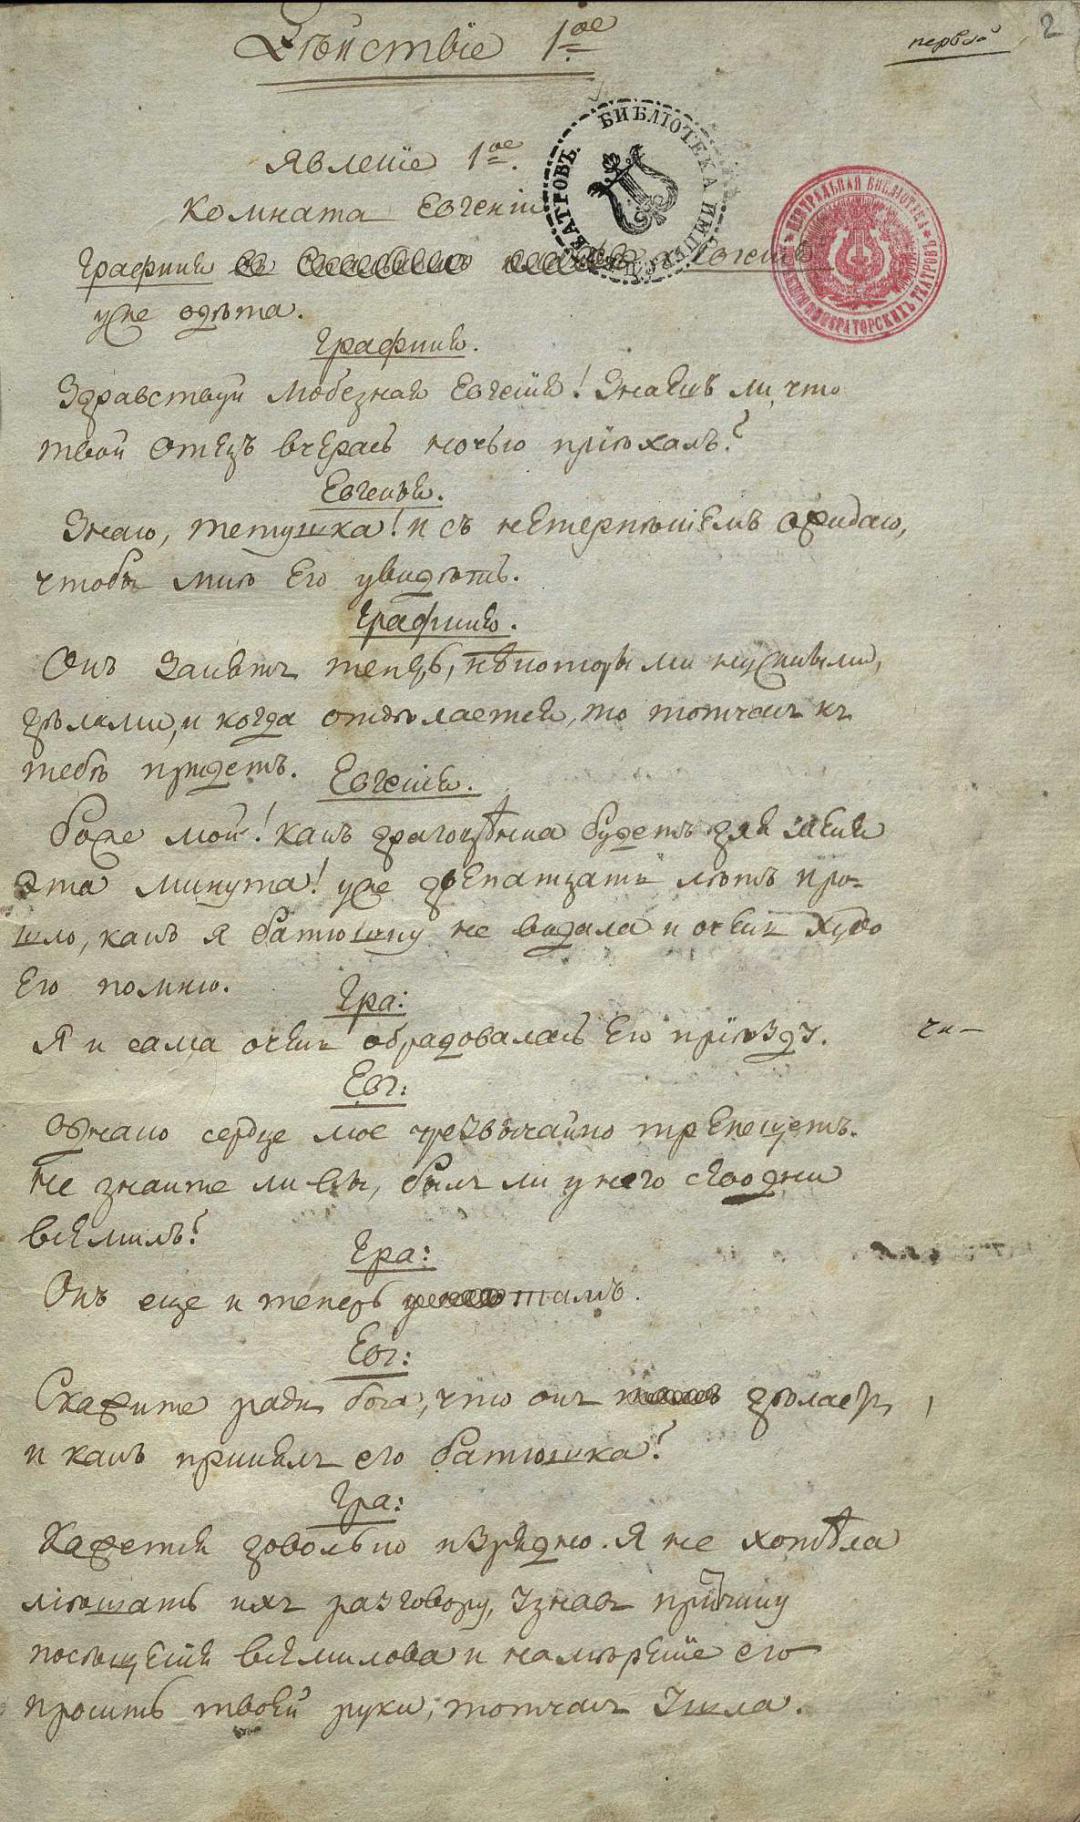 Дѣйствіе 1ое
первой
2
Явленіе 1ое.
Комната Евгеніи
Графиня
уже одѣта.
Графиня.
Здравствуй любезная Евгенія! Знаешь ли, что
твой отецъ вчерась ночью пріѣхалъ?
Евгенья.
Знаю, тетушка! и съ нетерпѣніемъ ожидаю,
чтобы мнѣ его увидѣть.
Графиня.
Онъ занятъ теперь, нѣкоторыми нужными,
дѣлами, и когда отдѣлается, то тотчасъ къ
тебѣ придетъ.
Евгенія.
Боже мой! какъ драгоцѣнна будетъ для меня
эта минута! уже двенатцать лѣтъ про-
шло, какъ я батюшку не видала и очень худо
его помню.
Гра:
Я и сама очень обрадовалась его пріѣзду.
чи-
Евг:
Однако сердце мое чрезвычайно трепещетъ.
Не знаите ли вы, былъ ли у него сегодни
всемилъ?
Гра:
Онъ еще и теперь тамъ.
Евг:
Скажите ради бога, что онъ дѣлаетъ,
и какъ принялъ его батюшка?
Гра:
Кажется довольно изрядно. Я не хотѣла
мѣшать ихъ разговору, узнавъ причину
посѣщенія всемилова и намѣреніе его
просить твоей руки, тотчасъ ушла.
БИБЛІОТЕКА ИМПЕРАТОРСКИХЪ ТЕАТРОВЪ.
ЦЕНТРАЛЬНАЯ БИБЛІОТЕКА ИМПЕРАТОРСКИХЪ ТЕАТРОВЪ